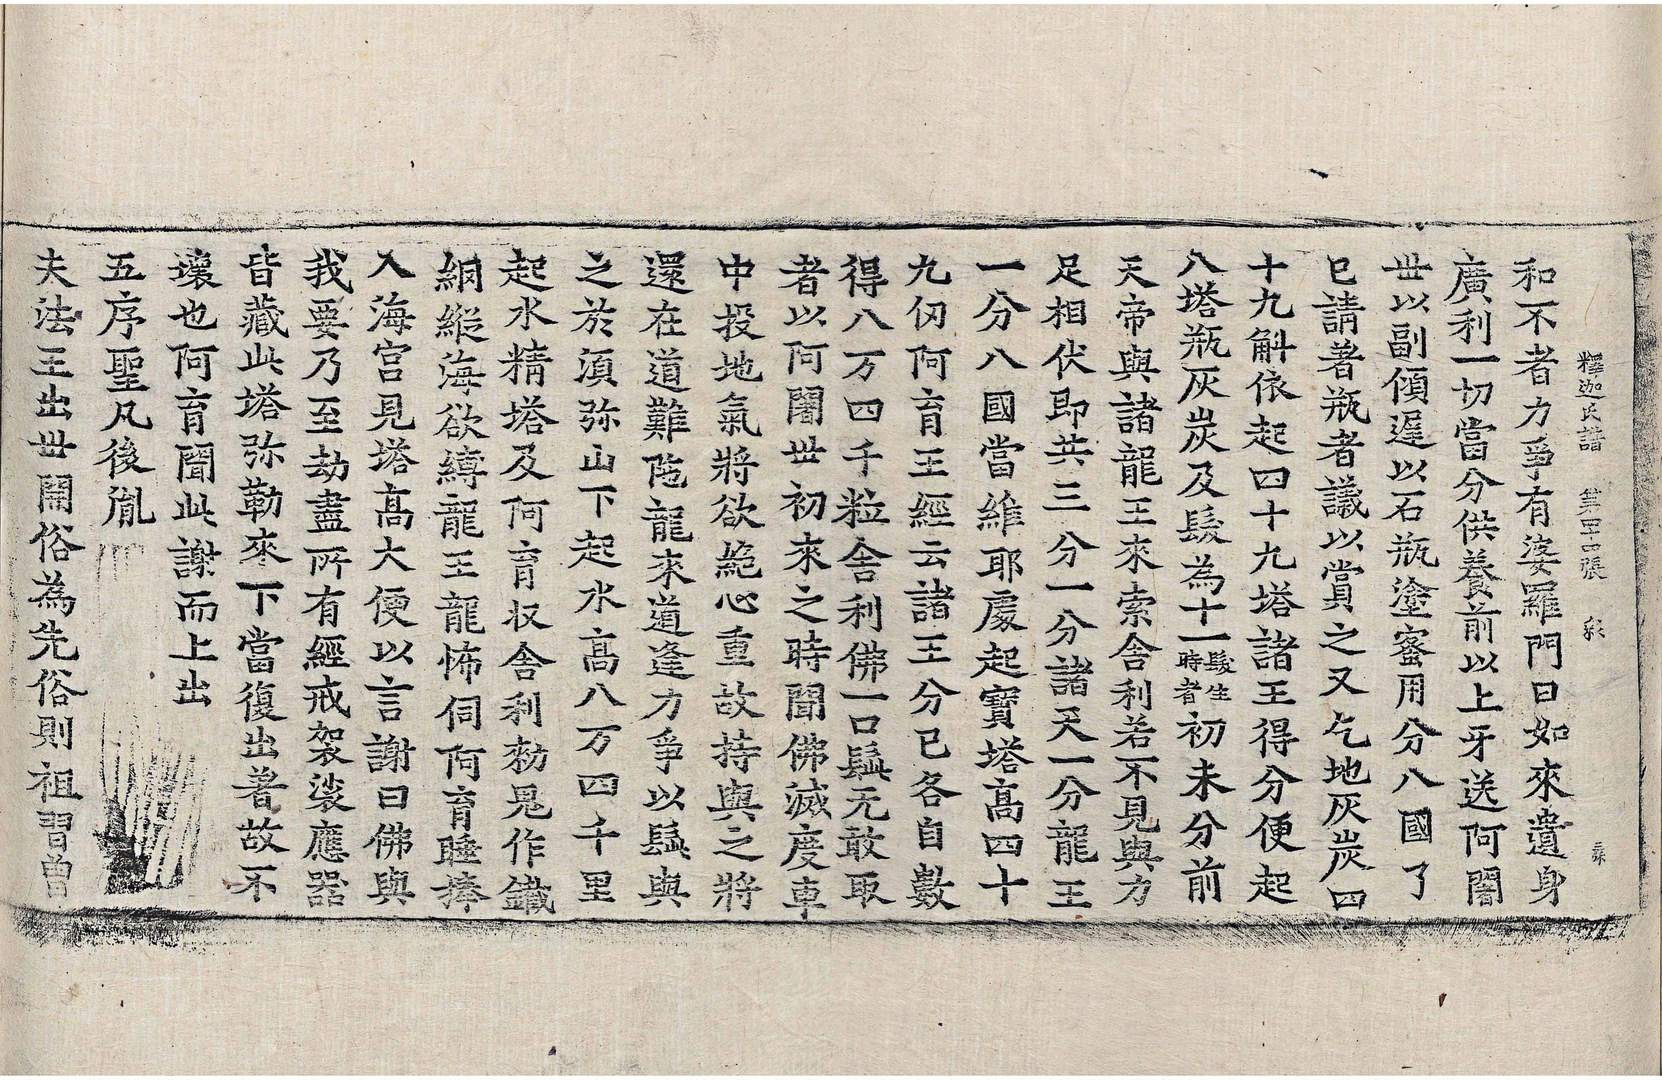 釋迦氏譜 第四十張 㲋
和不者力爭有婆羅門曰如來遺身
廣利一切當分供養前以上牙送阿闍
世以副傾遲以石瓶塗蜜用分八國了
已請著瓶者議以賞之又乞地灰炭四
十九斛依起四十九塔諸王得分便起
八塔瓶灰炭及髮為十一髮生時者初未分前
天帝與諸龍王來索舍利若不見與力
足相伏即共三分一分諸天一分龍王
一分八國當維耶處起寶塔高四十
九仞阿育王經云諸王分已各自數
得八万四千粒舍利佛一口髭无敢取
者以阿闍世初來之時聞佛滅度車
中投地氣將欲絕心重故持與之將
還在道難陁龍來道逢力爭以髭與
之於湏弥山下起水高八万四千里
起水精塔及阿育収舍利勑鬼作鐵
網縱海欲縛龍王龍怖伺阿育睡捧
入海宮見塔高大便以言謝曰佛與
我要乃至劫盡所有經戒袈裟應器
皆藏此塔弥勒來下當復出著故不
壞也阿育聞此謝而上出
五序聖凡後胤
夫法王出世開俗為先俗則祖習曾